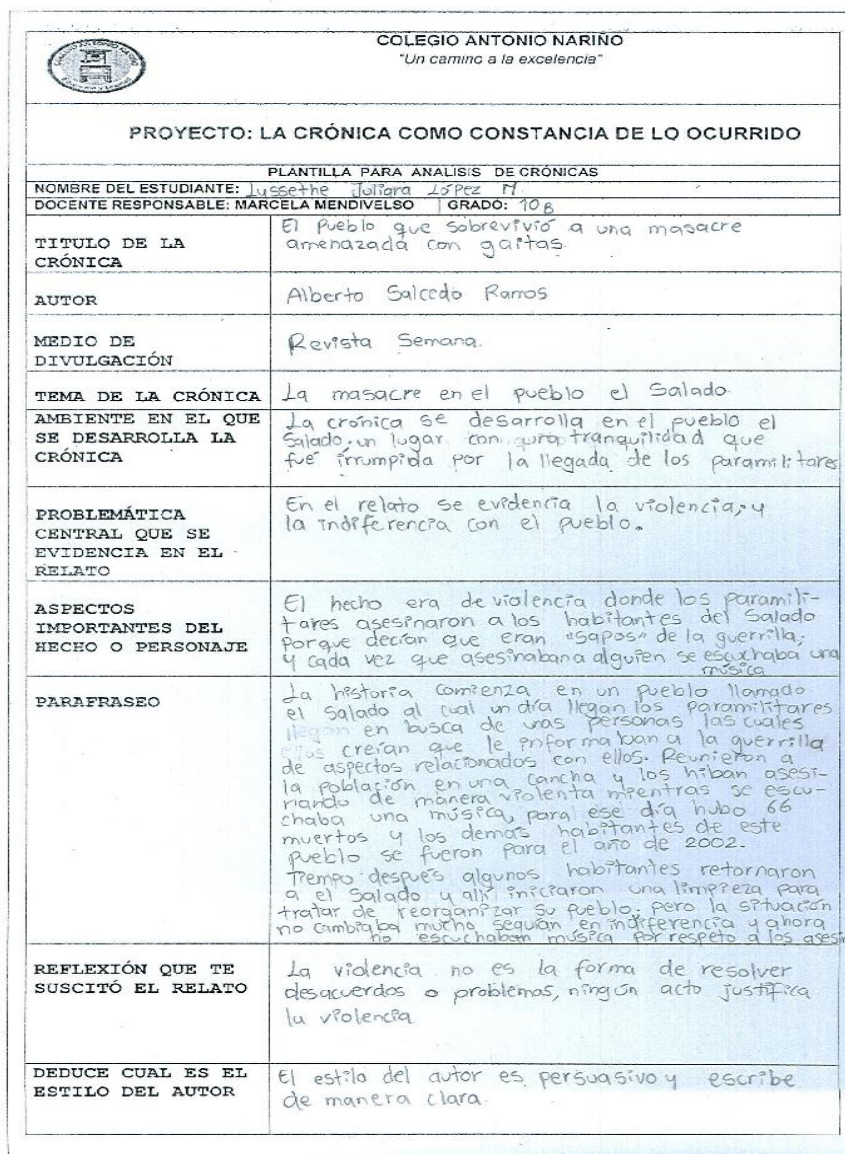 COLEGIO ANTONIO NARIÑO
"Un camino a la excelencia"
PROYECTO: LA CRÓNICA COMO CONSTANCIA DE LO OCURRIDO
PLANTILLA PARA ANALISIS DE CRÓNICAS
NOMBRE DEL ESTUDIANTE: Lussethe Juliana López M.
DOCENTE RESPONSABLE: MARCELA MENDIVELSO GRADO: 10B
TITULO DE LA
CRÓNICA
El Pueblo que sobrevivió a una masacre
amenazada con gaitas.
AUTOR
Alberto Salcedo Ramos
MEDIO DE
DIVULGACIÓN
Revista Semana.
TEMA DE LA CRÓNICA
La masacre en el pueblo el Salado
AMBIENTE EN EL QUE
SE DESARROLLA LA
CRÓNICA
La crónica se desarrolla en el pueblo el
Salado, un lugar con pura tranquilidad que
fué irrumpida por la llegada de los paramilitares
PROBLEMÁTICA
CENTRAL QUE SE
EVIDENCIA EN EL
RELATO
En el relato se evidencia la violencia, y
la indiferencia con el pueblo.
ASPECTOS
IMPORTANTES DEL
HECHO O PERSONAJE
El hecho era de violencia donde los paramili-
tares asesinaron a los habitantes del Salado
porque decían que eran "sapos" de la guerrilla,
y cada vez que asesinaban a alguien se escuchaba una
música
PARAFRASEO
La historia comienza en un pueblo llamado
el Salado al cual un día llegan los paramilitares
llegan en busca de unas personas las cuales
ellos creían que le informaban a la guerrilla
de aspectos relacionados con ellos. Reunieron a
la población en una cancha y los hiban asesi-
nando de manera violenta mientras se escu-
chaba una música, para ese día hubo 66
muertos y los demás habitantes de este
pueblo se fueron para el año de 2002.
Tiempo después algunos habitantes retornaron
a el Salado y allí iniciaron una limpieza para
tratar de reorganizar su pueblo, pero la situación
no cambiaba mucho, seguían en indiferencia y ahora
no escuchaban música por respeto a los asesi
REFLEXIÓN QUE TE
SUSCITÓ EL RELATO
La violencia no es la forma de resolver
desacuerdos o problemas, ningún acto justifica
la violencia
DEDUCE CUAL ES EL
ESTILO DEL AUTOR
El estilo del autor es persuasivo y escribe
de manera clara.